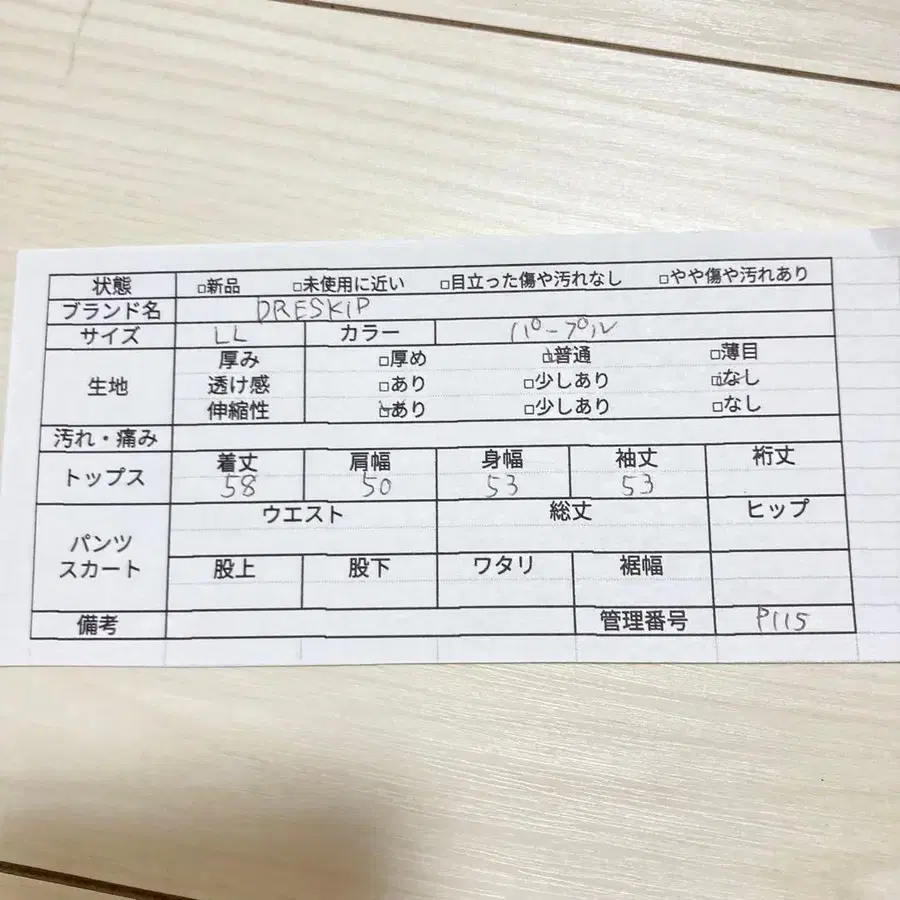 状態 □新品 □未使用に近い □目立った傷や汚れなし □やや傷や汚れあり
ブランド名 DRESKIP
サイズ LL カラー パープル
生地 厚み □厚め ☑普通 □薄目
透け感 □あり □少しあり ☑なし
伸縮性 ☑あり □少しあり □なし
汚れ・痛み
トップス 着丈 肩幅 身幅 袖丈 裄丈
58 50 53 53
パンツ スカート ウエスト 総丈 ヒップ
股上 股下 ワタリ 裾幅
備考 管理番号 P115